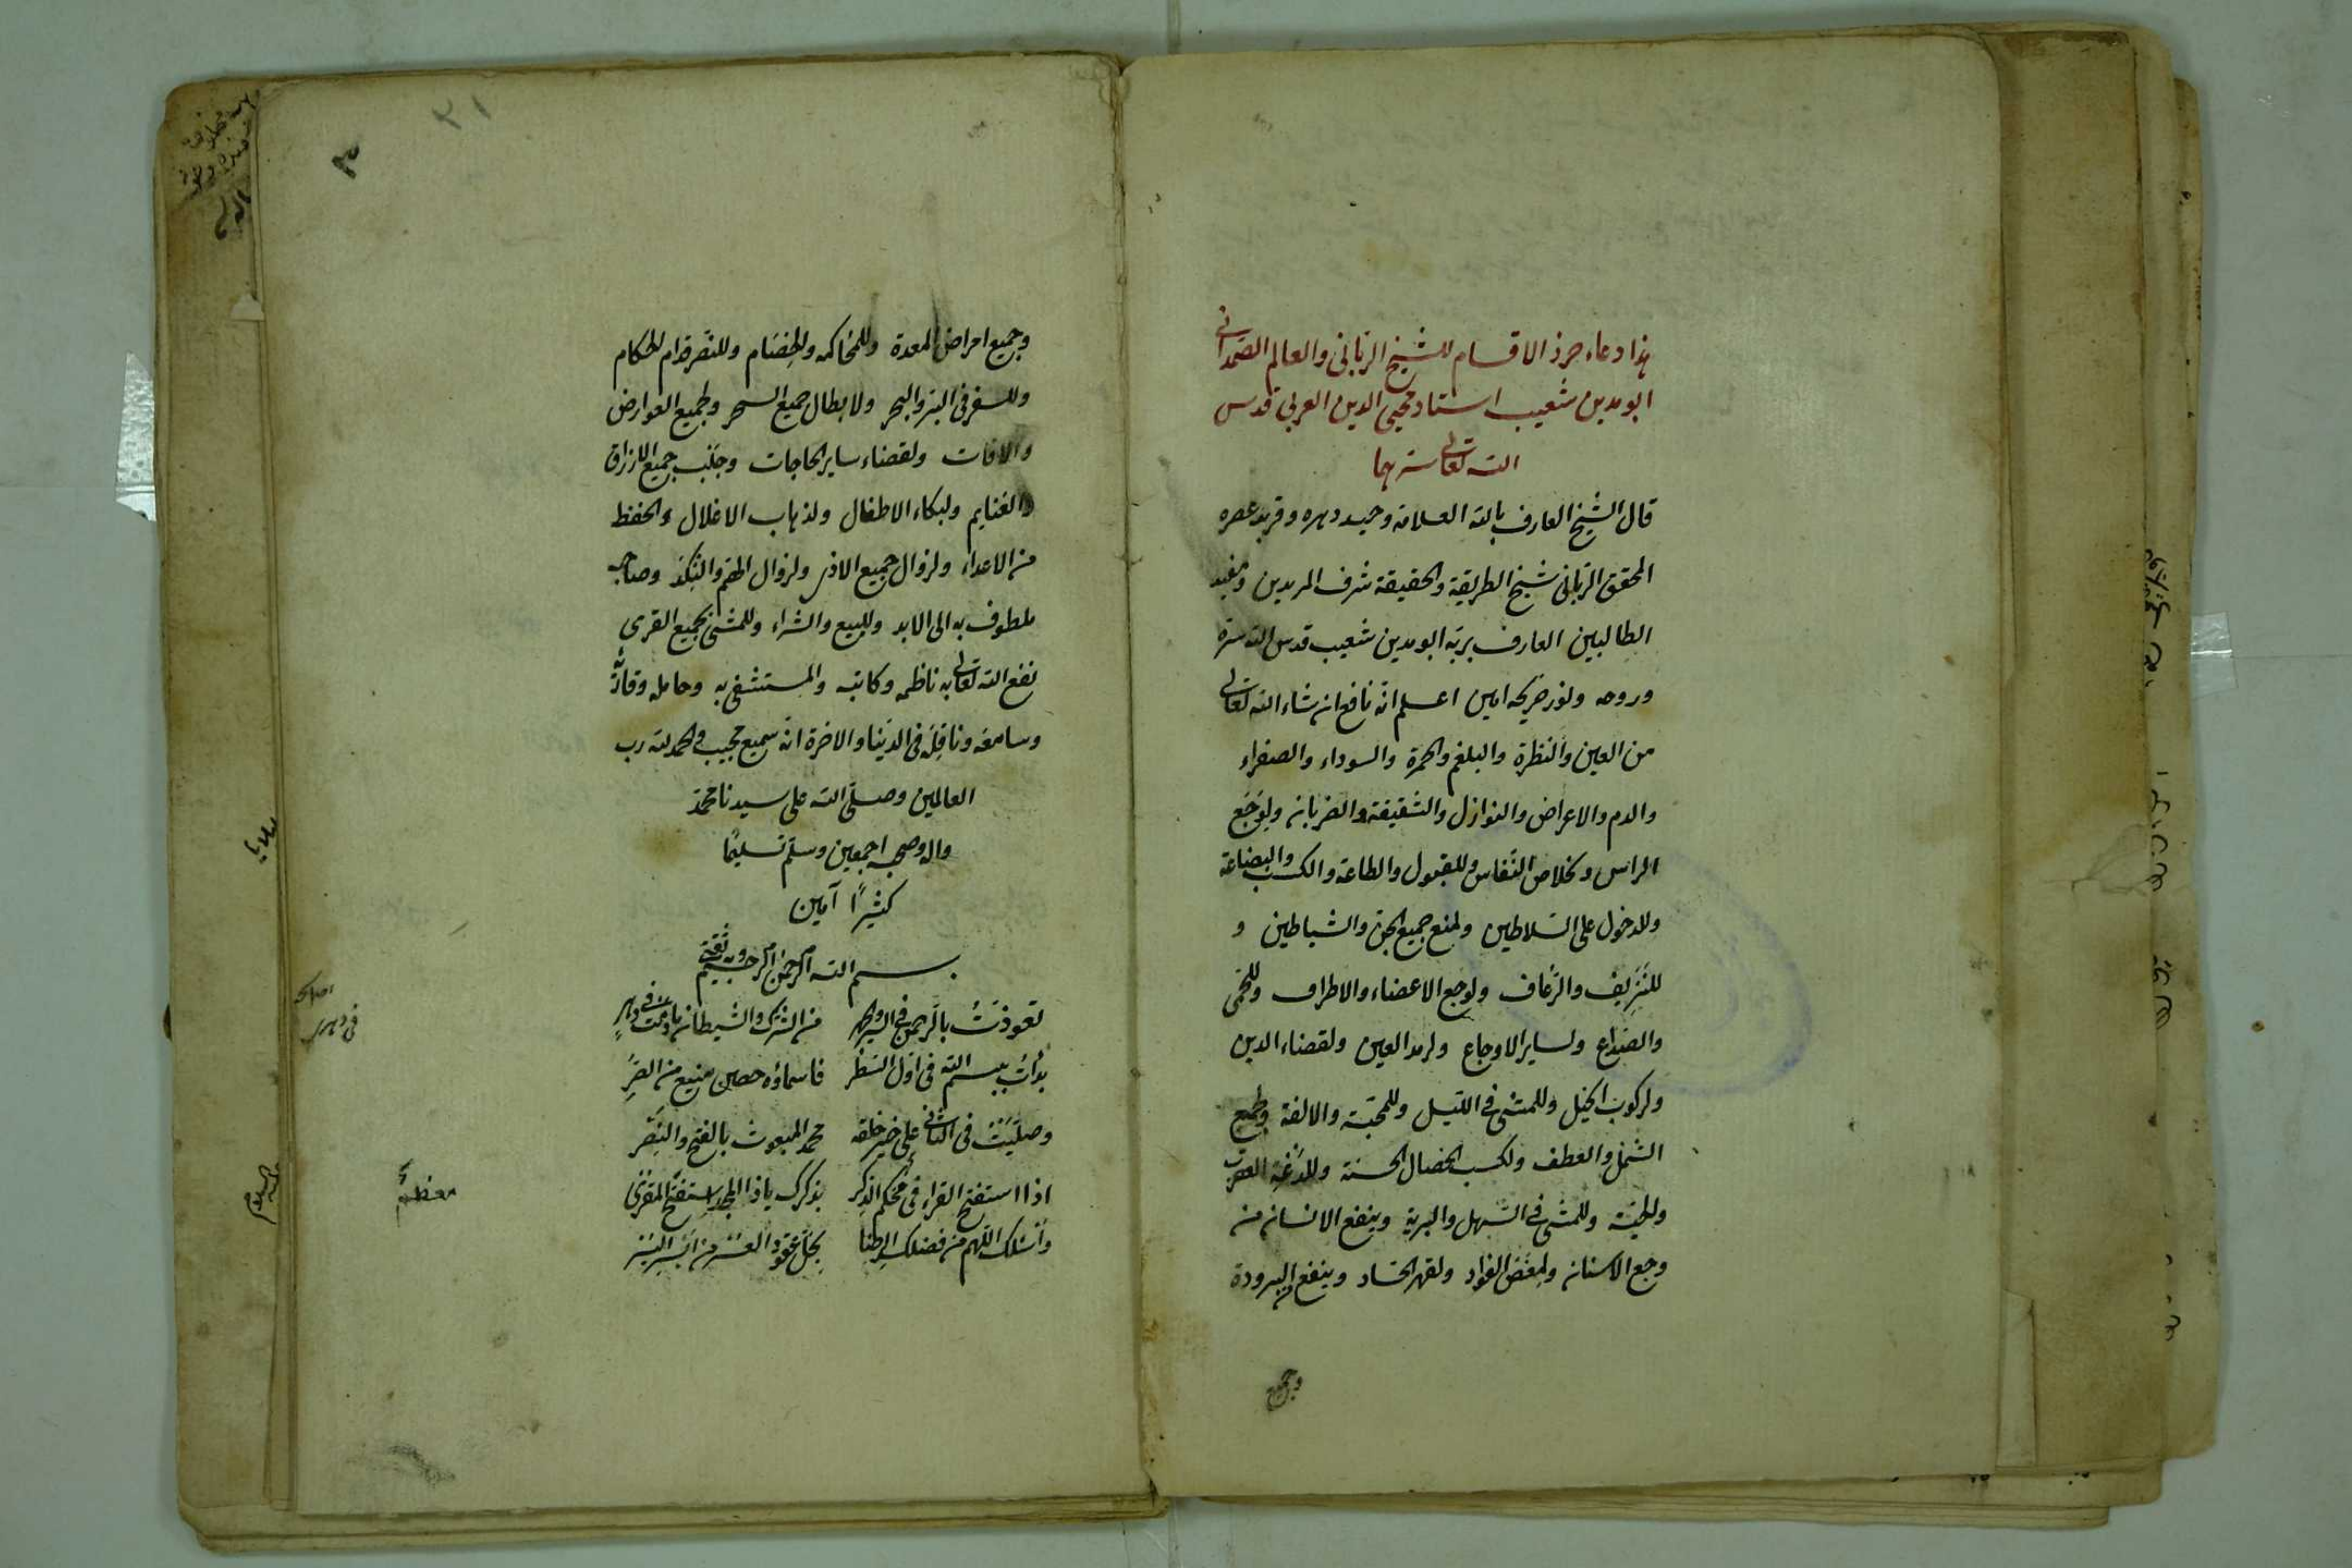 هذا دعاء حرز الاقسام للشيخ الربّاني والعالم الصمداني
ابو مدين شعيب استاد محيي الدين العربي قدس
الله تعالى سرهما
قال الشيخ العارف بالله العلامة وحيد دهره وفريد عصره
المحقق الربّاني شيخ الطريقة والحقيقة شرف المريدين ومفيد
الطالبين العارف بربّه ابو مدين شعيب قدس الله سره
وروحه ونور ضريحه امين اعلم انّه نافع ان شاء الله تعالى
من العين والنظرة والبلغم والحمرة والسوداء والصفراء
والدم والاعراض والنوازل والشقيقة والضربان ولوجع
الراس وخلاص النفاس وللقبول والطاعة والكسب والبضاعة
وللدخول على السّلاطين ولمنع جميع الجن والشياطين و
للنزيف والرّعاف ولوجع الاعضاء والاطراف وللحمى
والصداع ولساير الاوجاع ولرمد العين ولقضاء الدين
ولركوب الخيل وللمشي في الليل وللمحبّة والالفة ولجمع
الشمل والعطف ولكسب الخصال الحسنة وللدغة العقرب
ولحيّة وللمشي في السّهل والبرية وينفع الانسان من
وجع الاسنان ولمغص الفواد ولقهر الحسّاد وينفع من البرودة
وجميع
٣
٢١
وجميع امراض المعدة وللمحاكمه والخصام وللنصر قدام الحكام
وللسفر في البرّ والبحر ولابطال جميع السحر ولجميع العوارض
والافات ولقضاء ساير الحاجات وجلب جميع الارزاق
والغنايم ولبكاء الاطفال ولذهاب الاغلال والحفظ
من الاعداء ولزوال جميع الاذى ولزوال الهمّ والنكد وصاحبه
ملطوف به الى الابد وللبيع والشراء وللمشي بجميع القرى
نفع الله تعالى به ناظمه وكاتبه والمستشفي به وحامله وقارئه
وسامعه وناقله في الدنيا والاخرة انه سميع مجيب والحمد لله رب
العالمين وصلّى الله على سيدنا محمد
واله وصحبه اجمعين وسلّم تسليمًا
كثيرًا آمين
بسم الله الرحمن الرحيم وبه ثقتي
تعوذت بالرحمن في السر والجهر من الشرك والشيطان
بدأت ببسم الله في اول السّطر فاسماؤه حصين منيع من الضرّ
وصلّيت في الثاني على خير خلقه محمد المبعوث بالفتح والنصر
اذا استفتح القراء في محكم الذكر بذكرك ياذا المجد يستفتح المقري
وأسئلك اللهم من فضلك الرضا بحلّ عقود العسر من
معظم